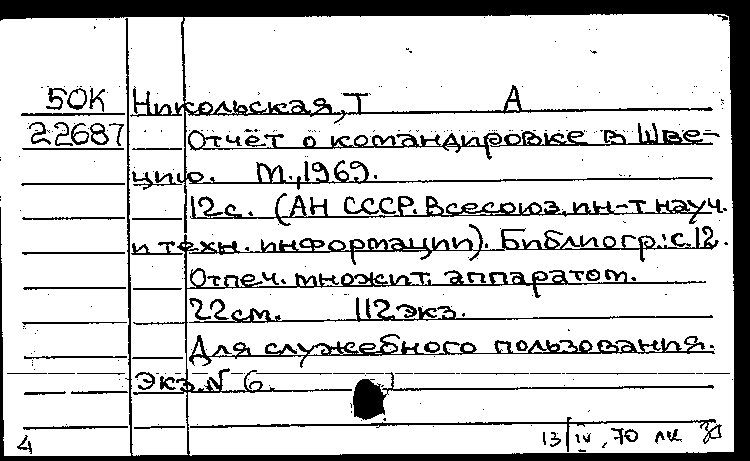 50К Никольская, Т А
22687 Отчёт о командировке в Шве-
цию. М., 1969.
12с. (АН СССР. Всесоюз. ин-т науч.
и техн. информации). Библиогр.: с.12.
Отпеч. множит. аппаратом.
22см. 112экз.
Для служебного пользования.
Экз. № 6.
4 13/IV, 70 лк